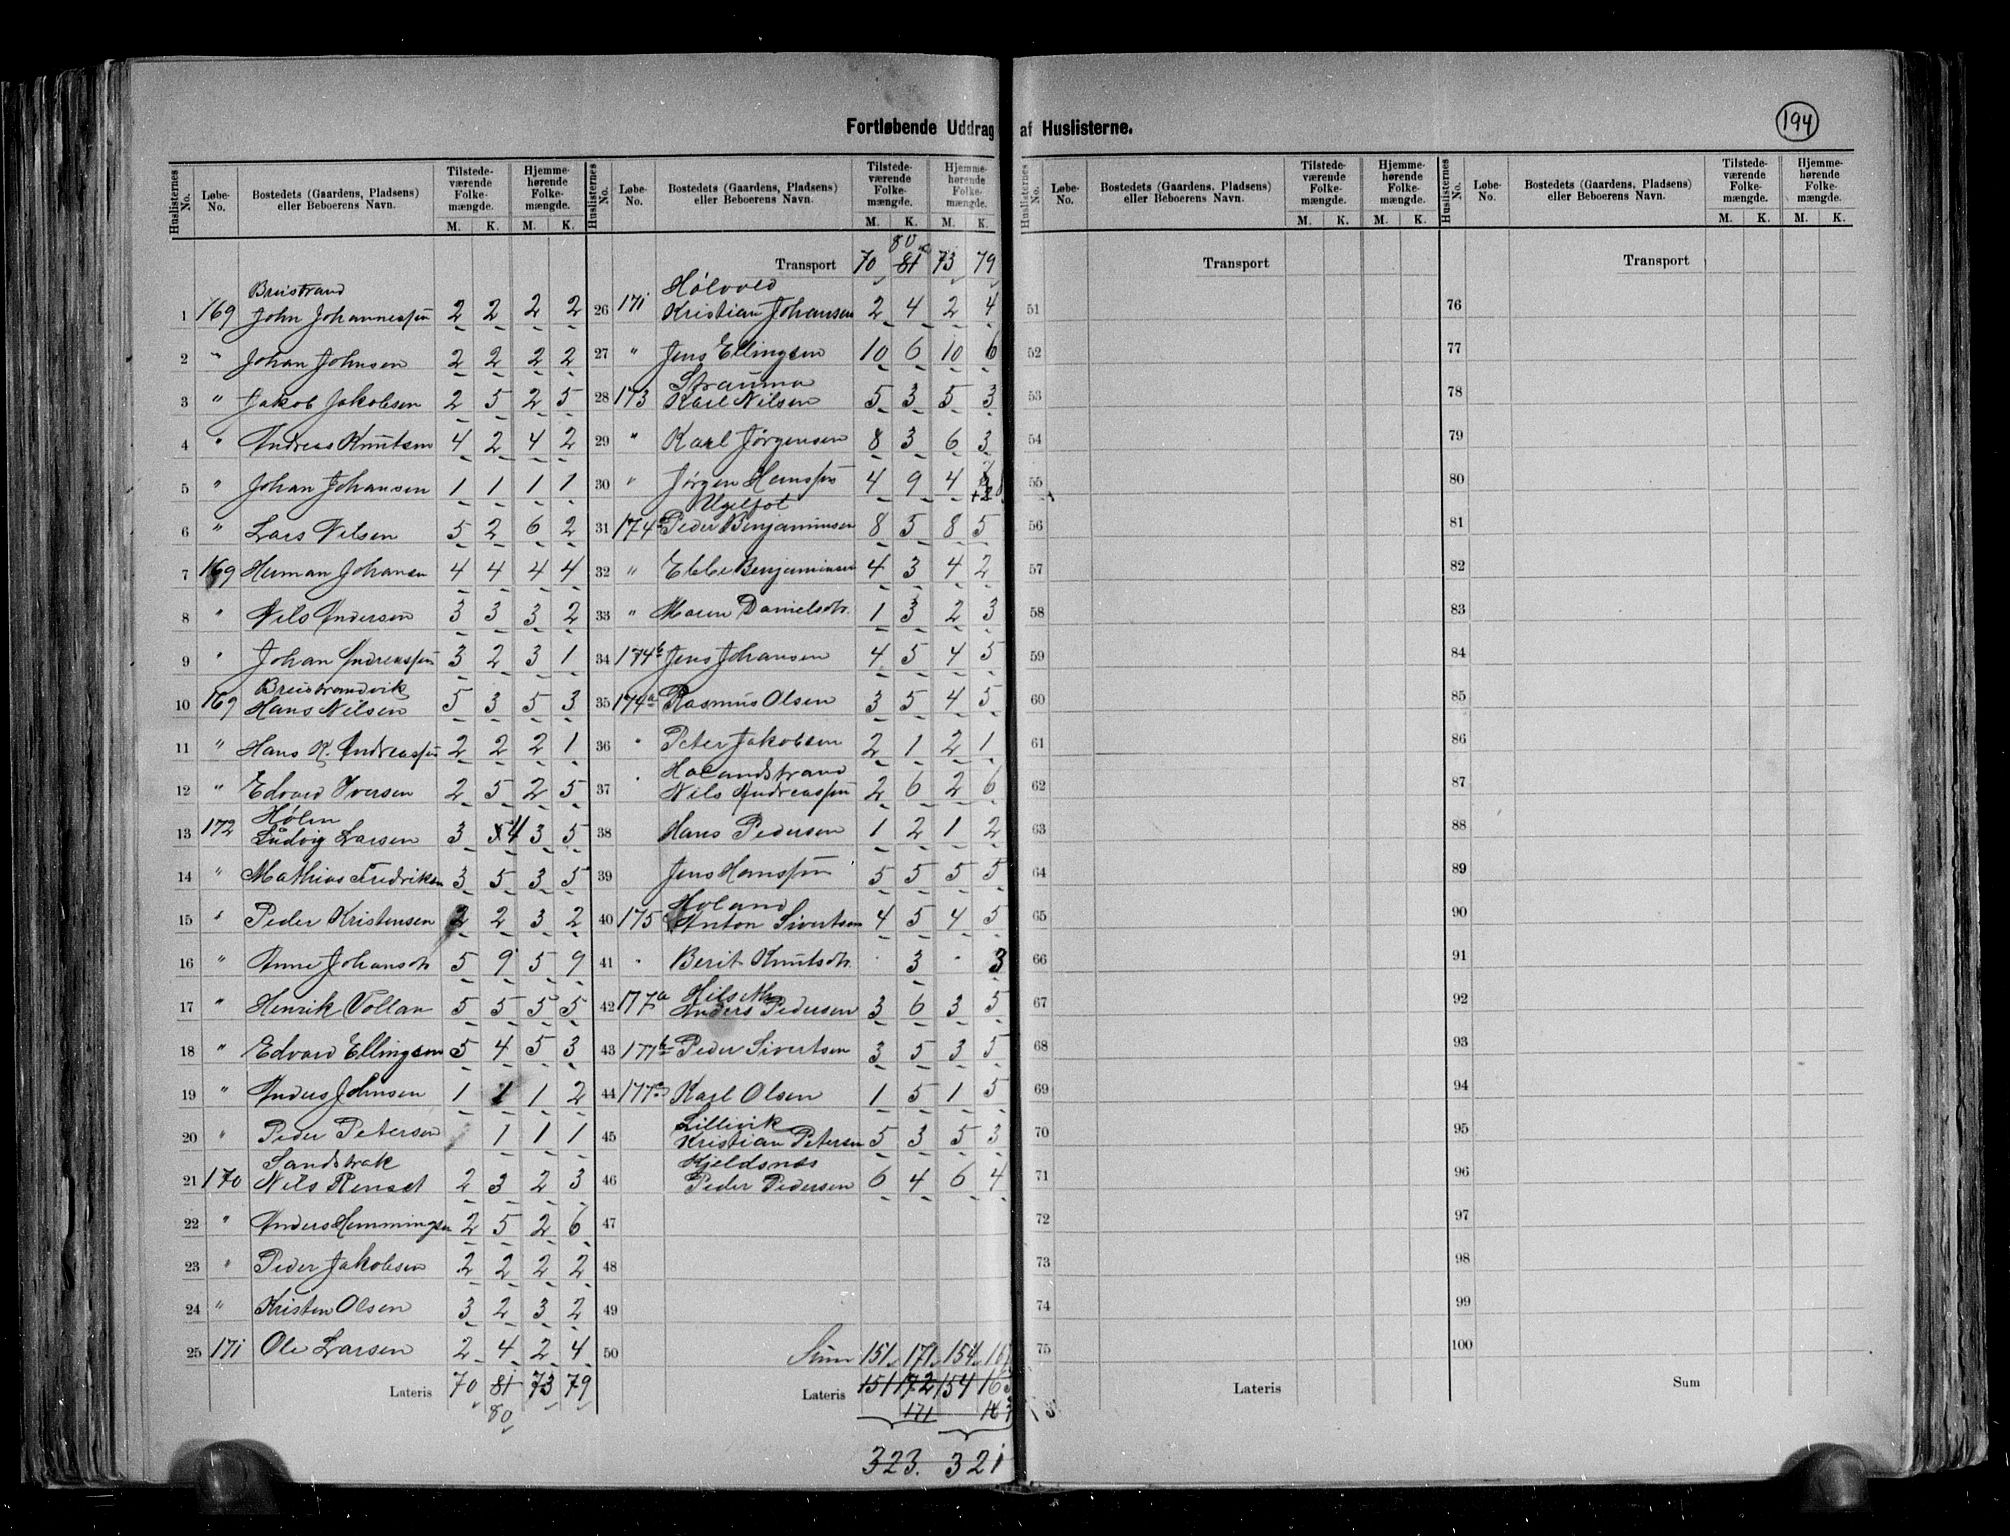 Fortløbende Uddrag af Huslisterne.
194
Huslisternes No. Løbe-No. Bostedets (Gaardens, Pladsens) eller Beboerens Navn. Tilstedeværende Folkemængde. M. K. Hjemmehørende Folkemængde. M. K.
Breistrand
1 169 John Johannessen 2 2 2 2
2 " Johan Johnsen 2 2 2 2
3 " Jakob Jakobsen 2 5 2 5
4 " Andreas Knutsen 4 2 4 2
5 " Johan Johansen 1 1 1 1
6 " Lars Nilsen 5 2 6 2
7 169 Herman Johansen 4 4 4 4
8 " Nils Andersen 3 3 3 2
9 " Johan Andreassen 3 2 3 1
Breistrandvik
10 169 Hans Nilsen 5 3 5 3
11 " Hans K. Andreassen 2 2 2 1
12 " Edvard Iversen 2 5 2 5
Hølen
13 172 Ludvig Larsen 3 5 4 3 5
14 " Mathias Fredriksen 3 5 3 5
15 " Peder Kristensen 2 2 3 2
16 " Anne Johansdtr 5 9 5 9
17 " Henrik Vollan 5 5 5 5
18 " Edvard Ellingsen 5 4 5 3
19 " Anders Johnsen 1 1 1 2
20 " Peder Petersen 1 1 1
Sandstrak
21 170 Nils Renset 2 3 2 3
22 " Anders Hemmingsen 2 5 2 6
23 " Peder Jakobsen 2 2 2 2
24 " Kristen Olsen 3 2 3 2
25 171 Ole Larsen 2 4 2 4
Lateris 70 81 73 79
80
Huslisternes No. Løbe-No. Bostedets (Gaardens, Pladsens) eller Beboerens Navn. Tilstedeværende Folkemængde. M. K. Hjemmehørende Folkemængde. M. K.
80
Transport 70 81 73 79
Hølvold
26 171 Kristian Johansen 2 4 2 4
27 " Jens Ellingsen 10 6 10 6
Strauma
28 173 Karl Nilsen 5 3 5 3
29 " Karl Jørgensen 8 3 6 3
30 " Jørgen Hanssen 4 9 4 8
Ugelfot
31 174 Peder Benjaminsen 8 5 8 5
32 " Ebbe Benjaminsen 4 3 4 2
33 " Maren Danielsdtr. 1 3 2 3
34 174b Jens Johansen 4 5 4 5
35 174a Rasmus Olsen 3 5 4 5
36 " Peter Jakobsen 2 1 2 1
Holandstrand
37 " Nils Andreassen 2 6 2 6
38 Hans Pedersen 1 2 1 2
39 Jens Hanssen 5 5 5 5
Holand
40 175 Anton Sivertsen 4 5 4 5
41 " Berit Knutsdtr. · 3 · 3
Hilseth
42 177a Anders Pedersen 3 6 3 5
43 177b Peder Sivertsen 3 5 3 5
44 177c Karl Olsen 1 5 1 5
Lillevik
45 Kristian Petersen 5 3 5 3
Kjeldsnes
46 Peder Pedersen 6 4 6 4
47
48
49
50 Sum 151 171 154 167
Lateris 151 172 154 165
171 167
323. 321
Huslisternes No. Løbe-No. Bostedets (Gaardens, Pladsens) eller Beboerens Navn. Tilstedeværende Folkemængde. M. K. Hjemmehørende Folkemængde. M. K.
Transport
51
52
53
54
55
56
57
58
59
60
61
62
63
64
65
66
67
68
69
70
71
72
73
74
75
Lateris
Huslisternes No. Løbe-No. Bostedets (Gaardens, Pladsens) eller Beboerens Navn. Tilstedeværende Folkemængde. M. K. Hjemmehørende Folkemængde. M. K.
Transport
76
77
78
79
80
81
82
83
84
85
86
87
88
89
90
91
92
93
94
95
96
97
98
99
100
Sum